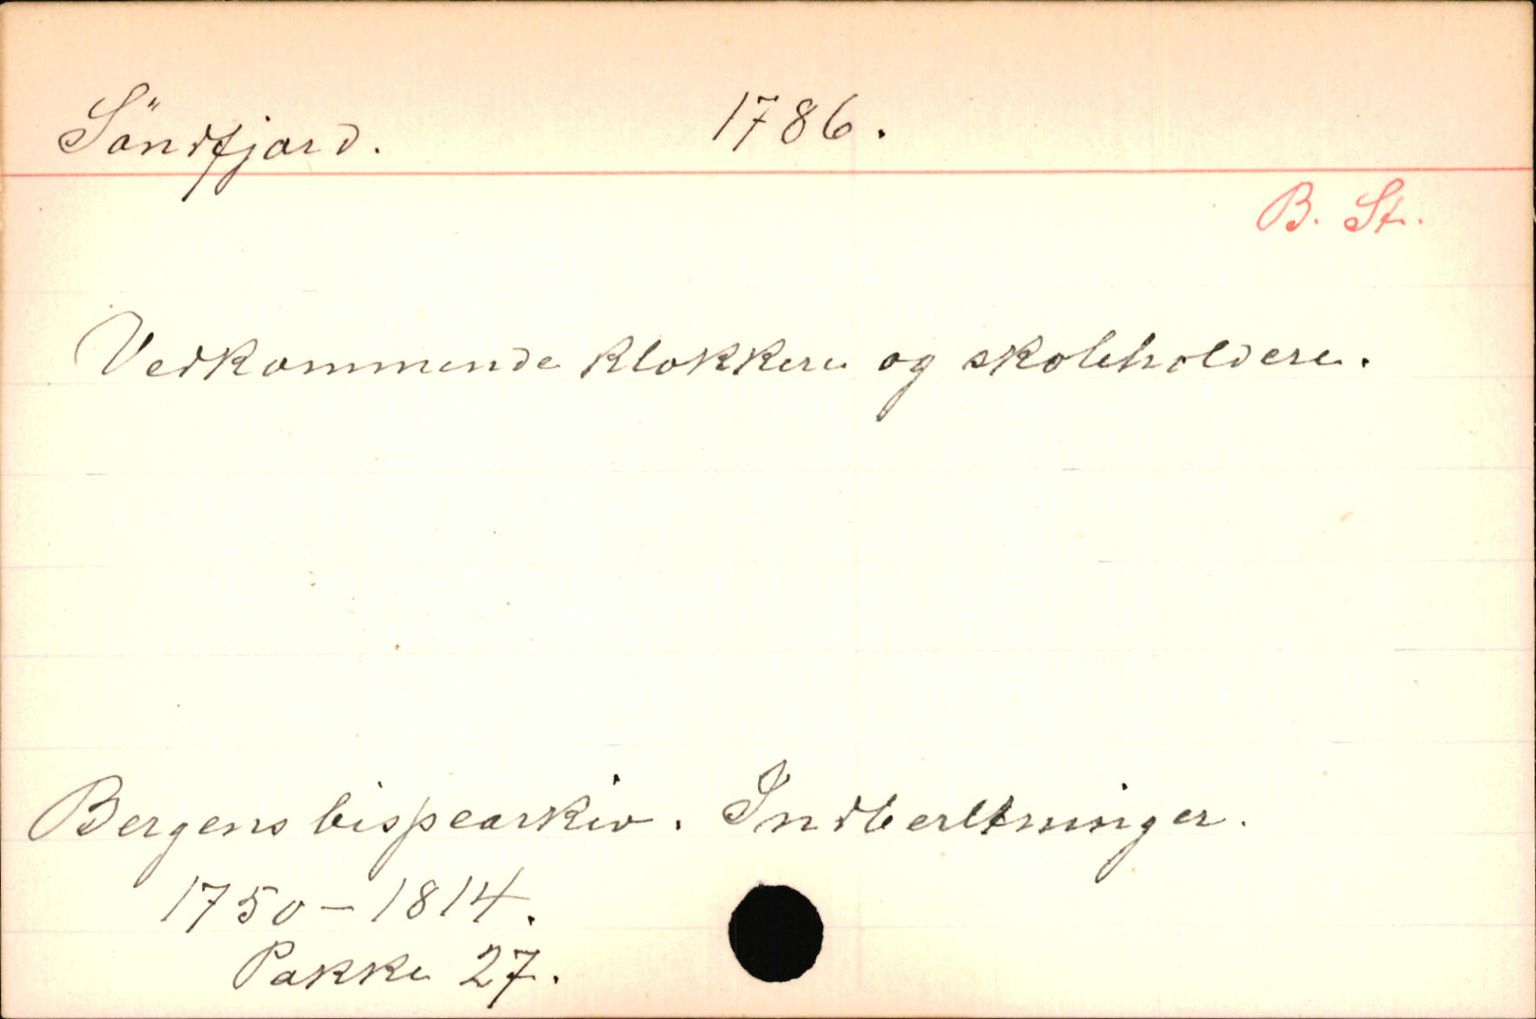 Söndfjord. 1786.
B. St.
Vedkommende klokkere og skoleholdere.
Bergens bispearkiv. Indberetninger.
1750-1814.
Pakke 27.